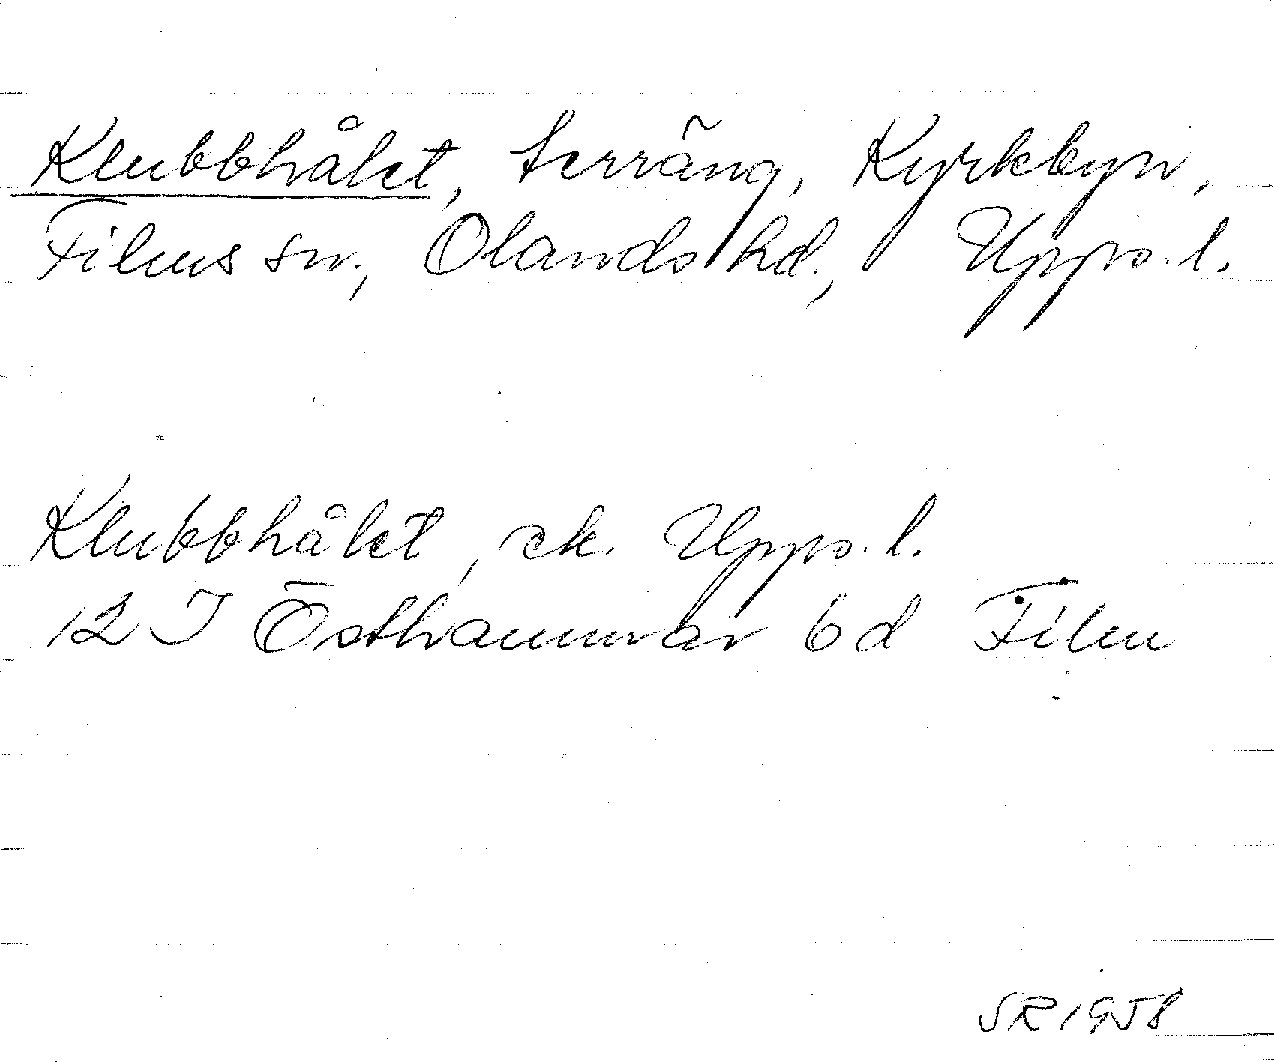 Klubbhålet, terräng, Kyrkbyn,
Films sn., Olands hd., Upps.l.
Klubbhålet, ek. Upps.l.
12 I Östhammar 6d Film
SR 1958